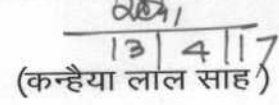 13|4|17
(कन्हैया लाल साह)